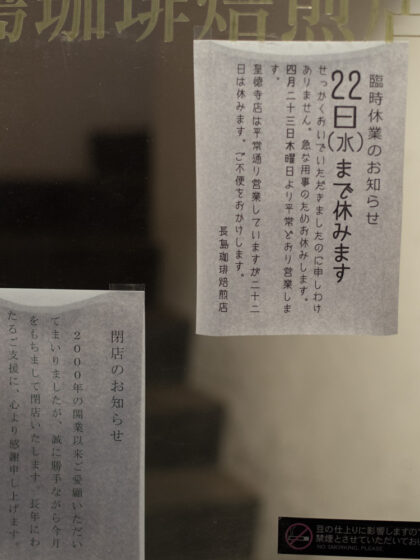 島珈琲焙煎店
臨時休業のお知らせ
22日(水)まで休みます
せっかくおいでいただきましたのに申しわけ
ありません。急な用事のためお休みします。
四月二十三日木曜日より平常どおり営業しま
す。
皇徳寺店は平常通り営業していますが二十二
日は休みます。ご不便をおかけします。
長島珈琲焙煎店
閉店のお知らせ
2000年の開業以来ご愛顧いただい
てまいりましたが、誠に勝手ながら今月
をもちまして閉店いたします。長年にわ
たるご支援に、心より感謝申し上げます。
豆の仕上りに影響しますので
禁煙とさせていただいてお
NO SMORKING, PLEASE